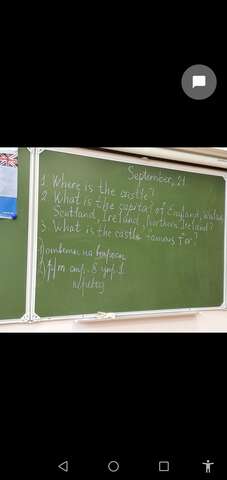 September, 21
1. Where is the castle?
2. What is the capital of England, Wales,
Scotland, Ireland, Northern Ireland?
3. What is the castle famous for?
1) ответы на вопросы
2) р/т стр. 8 упр. 1